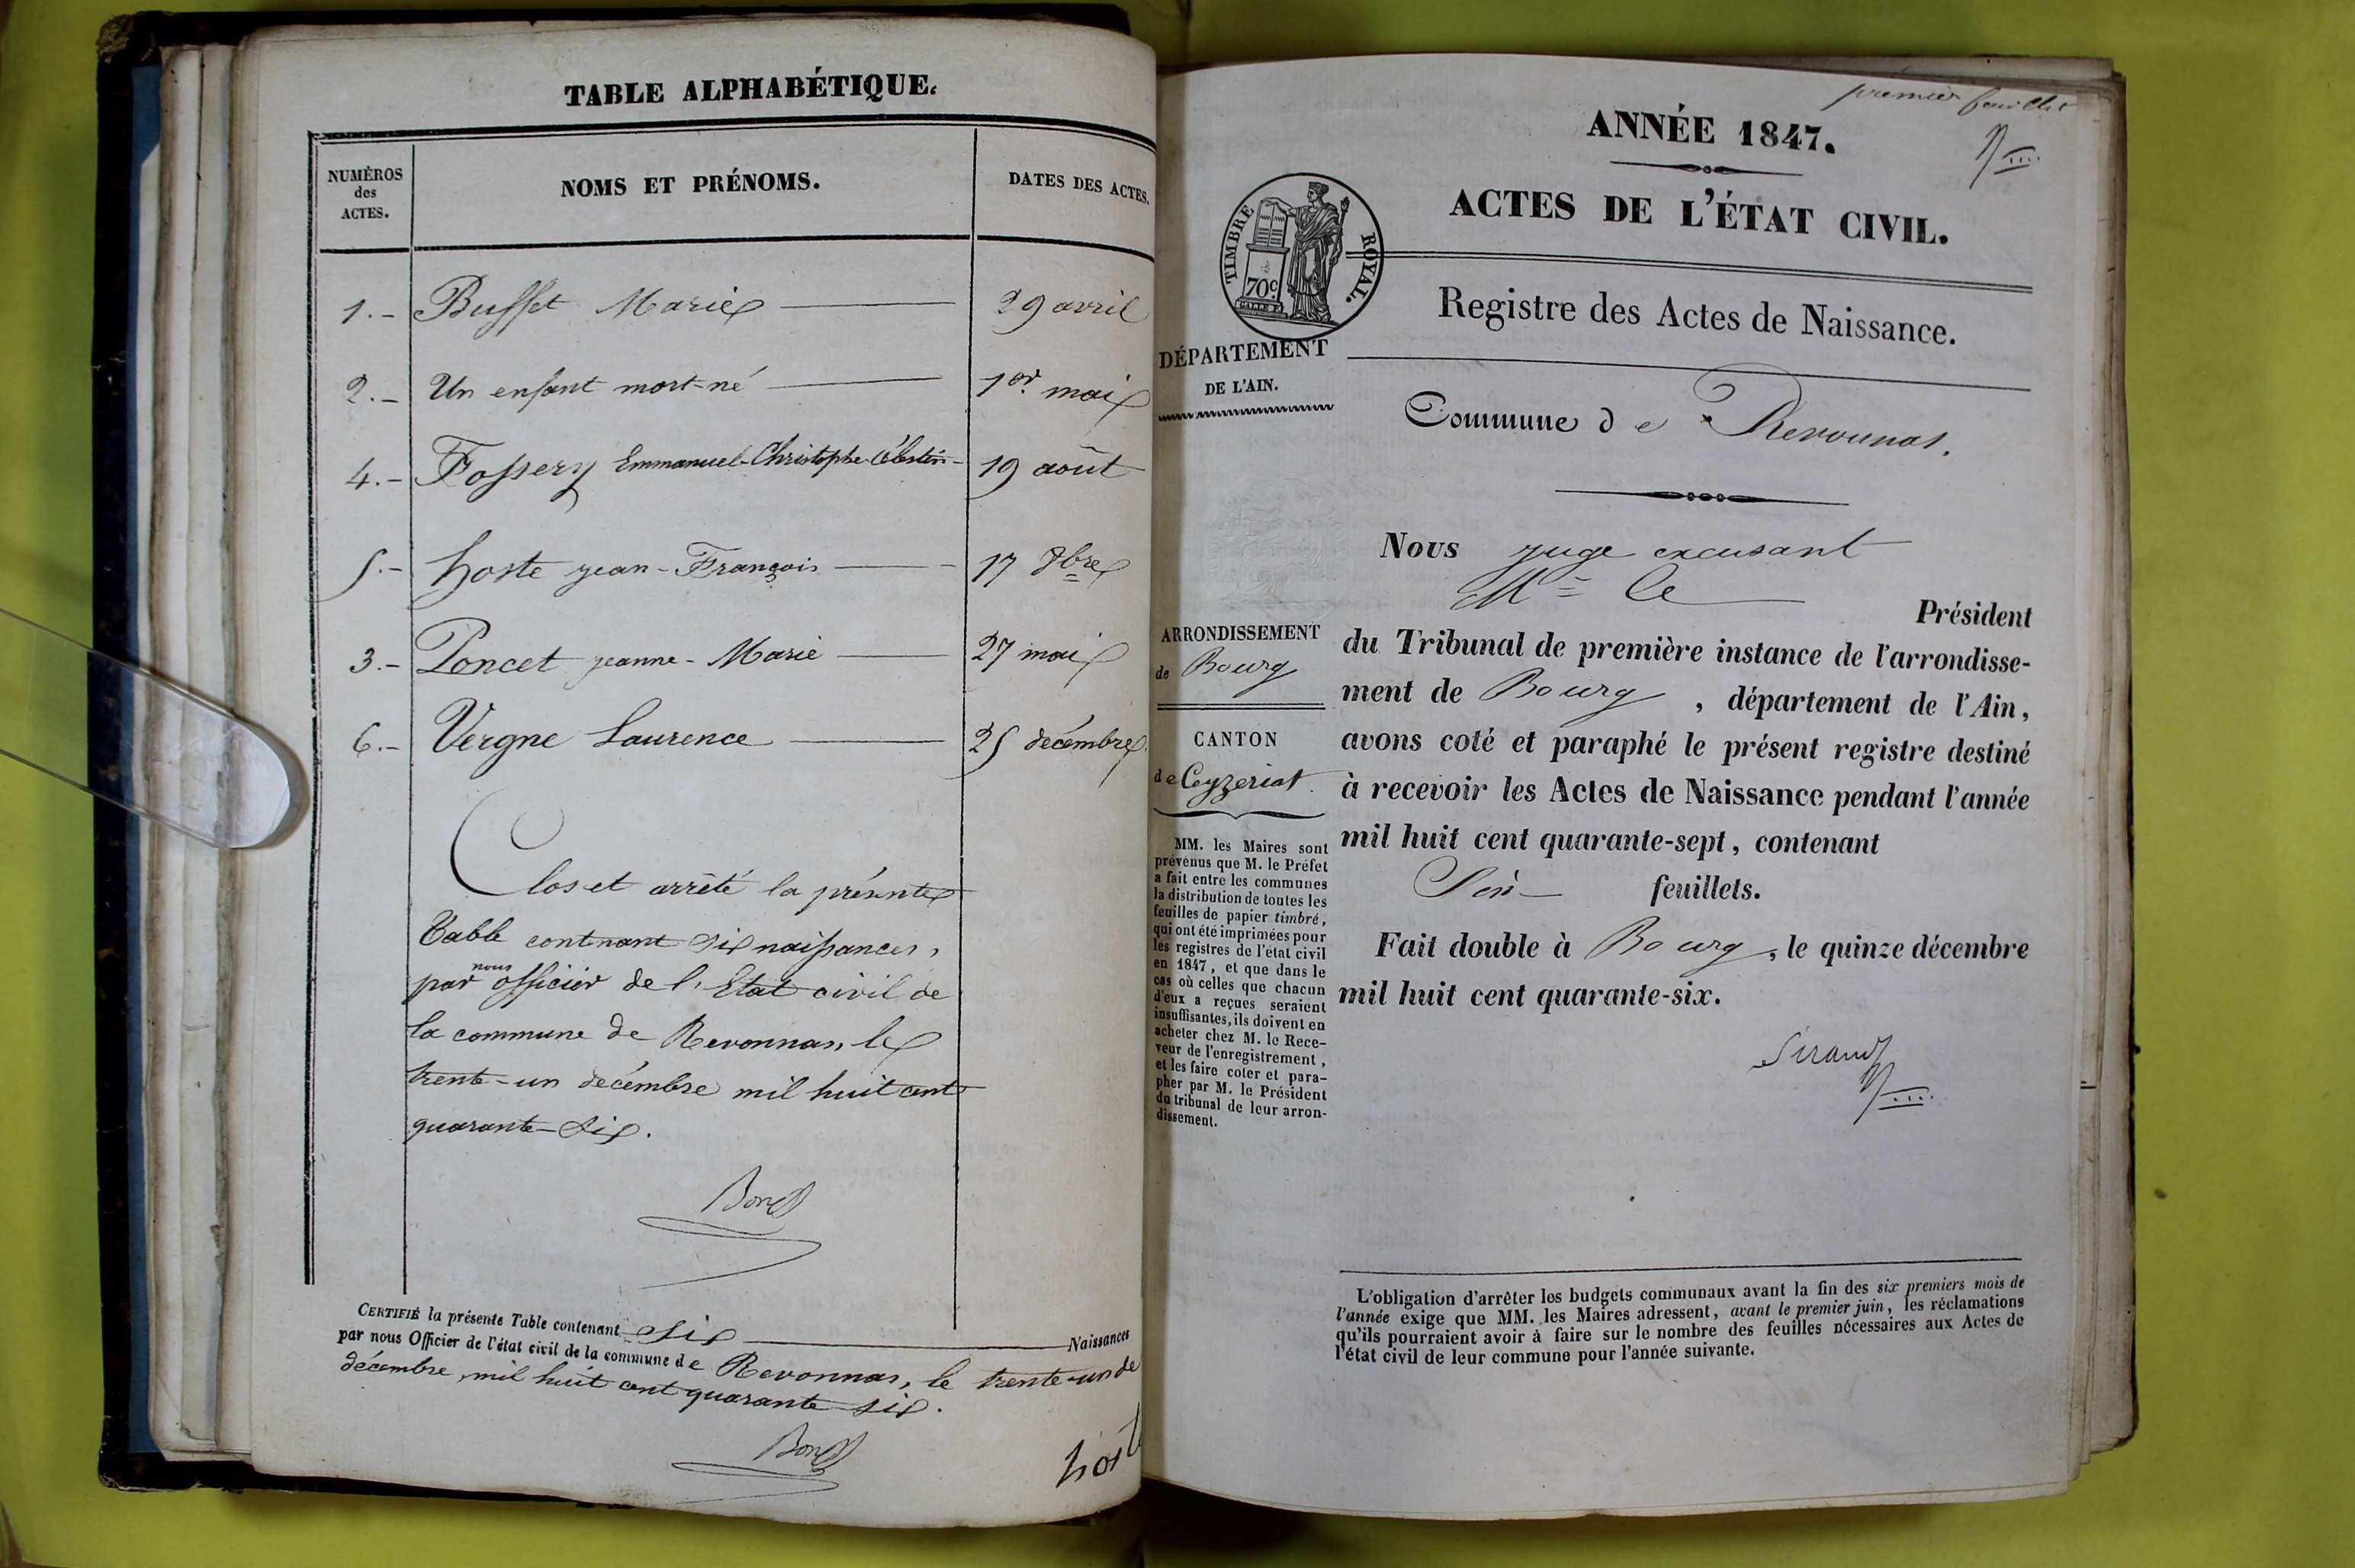 TABLE ALPHABÉTIQUE.
NUMÉROS
des
ACTES.
NOMS ET PRÉNOMS.
DATES DES ACTES.
1.- Buffet Marie 29 avril
2.- Un enfant mort-né 1er mai
4.- Fossery Emmanuel-Christophe-Célestin- 19 août
5.- hoste jean-François 17 8bre
3.- Poncet jeanne-Marie 27 mai
6.- Vergne Laurence 25 décembre
Clos et arrêté la présente
Table contenant six naissances,
par nous officier de l'Etat civil de
la commune de Revonnas, le
trente-un décembre mil huit cent
quarante-six.
CERTIFIÉ la présente Table contenant six Naissances
par nous Officier de l'état civil de la commune de Revonnas, le trente-un de
décembre, mil huit cent quarante-six.
host
premier feuillet
ANNÉE 1847.
ACTES DE L'ÉTAT CIVIL.
TIMBRE ROYAL.
70c
Registre des Actes de Naissance.
DÉPARTEMENT
DE L'AIN.
Commune de Revonnas.
Nous juge excusant
Mr le Président
du Tribunal de première instance de l'arrondisse-
ment de Bourg, département de l'Ain,
avons coté et paraphé le présent registre destiné
à recevoir les Actes de Naissance pendant l'année
mil huit cent quarante-sept, contenant
feuillets.
Fait double à Bourg, le quinze décembre
mil huit cent quarante-six.
Sirand
ARRONDISSEMENT
de Bourg
CANTON
de Ceyzeriat.
MM. les Maires sont
prévenus que M. le Préfet
a fait entre les communes
la distribution de toutes les
feuilles de papier timbré,
qui ont été imprimées pour
les registres de l'état civil
en 1847, et que dans le
cas où celles que chacun
d'eux a reçues seraient
insuffisantes, ils doivent en
acheter chez M. le Rece-
veur de l'enregistrement,
et les faire coter et para-
pher par M. le Président
du tribunal de leur arron-
dissement.
L'obligation d'arrêter les budgets communaux avant la fin des six premiers mois de
l'année exige que MM. les Maires adressent, avant le premier juin, les réclamations
qu'ils pourraient avoir à faire sur le nombre des feuilles nécessaires aux Actes de
l'état civil de leur commune pour l'année suivante.